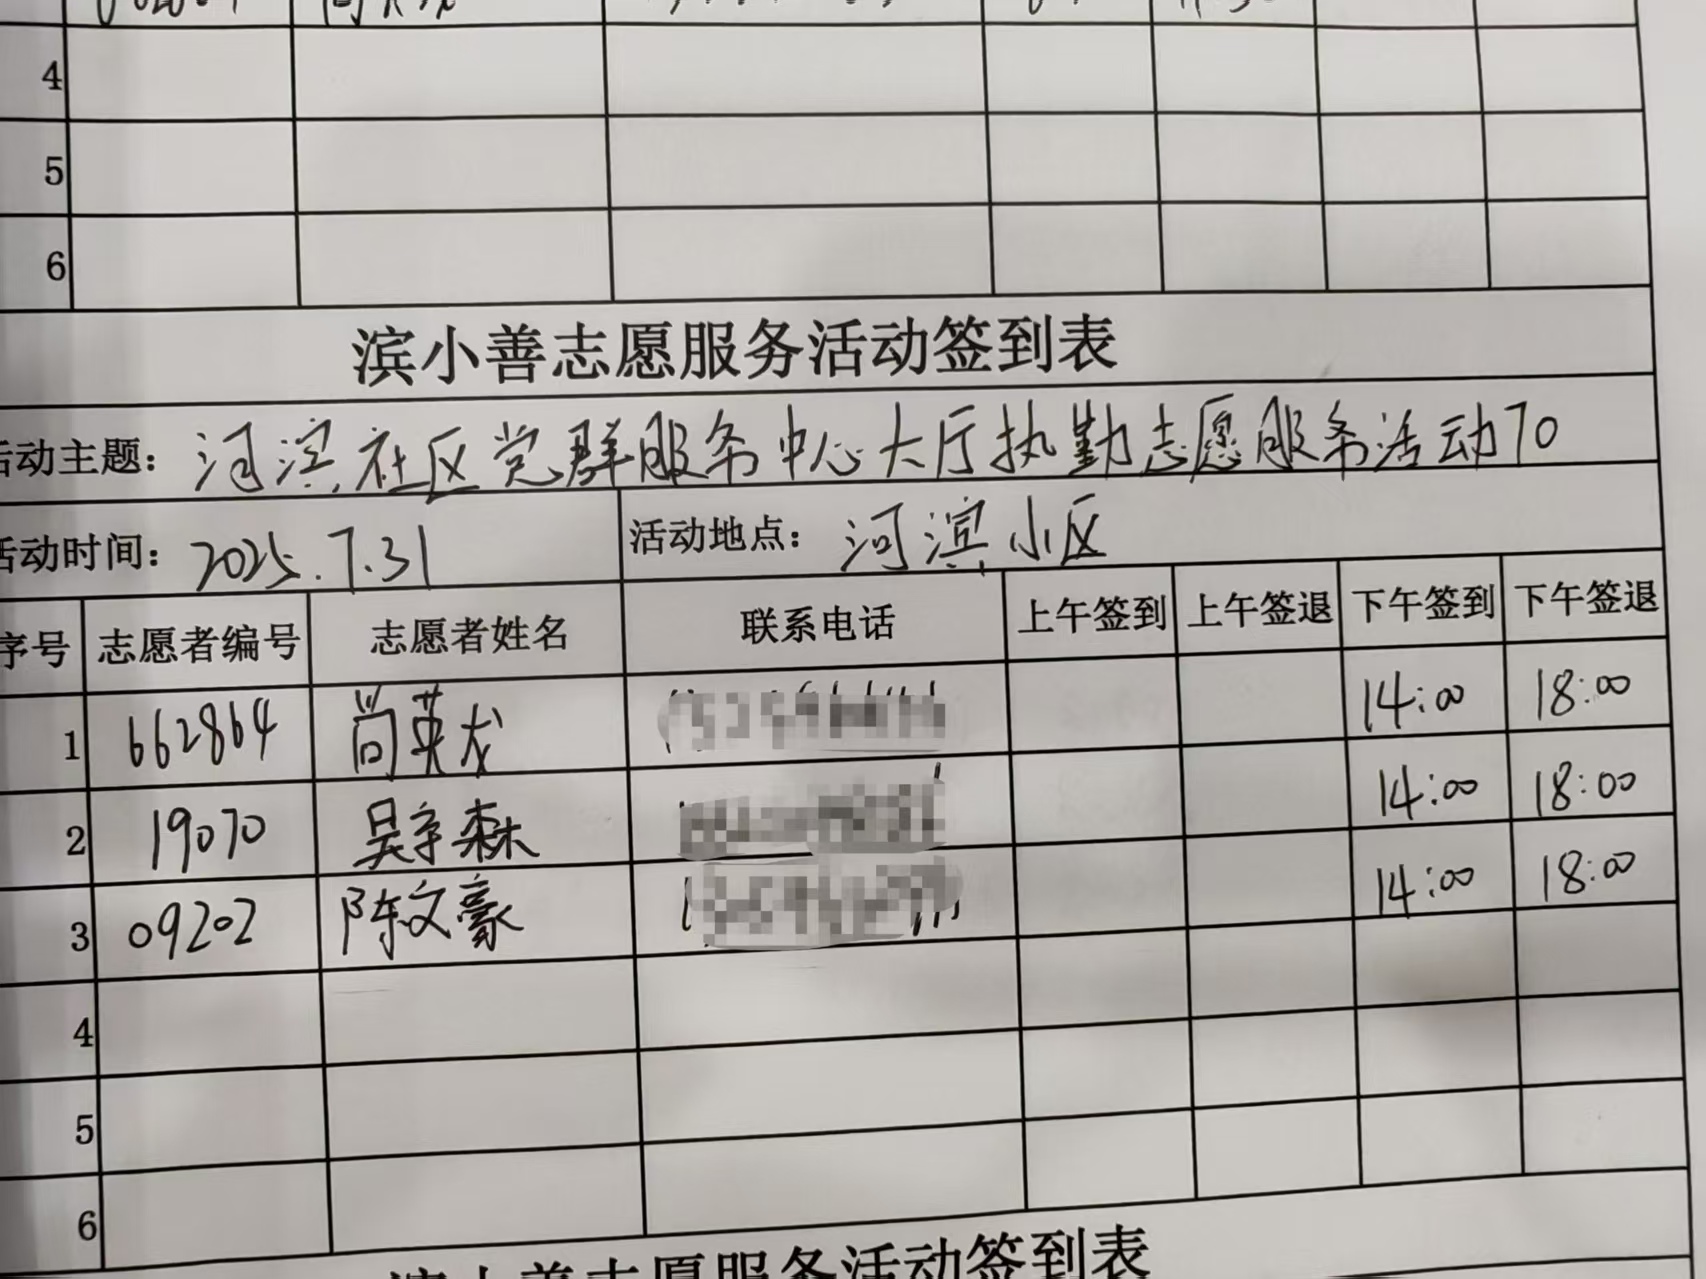 4
5
6
滨小善志愿服务活动签到表
活动主题：河滨社区党群服务中心大厅执勤志愿服务活动70
活动时间：2025.7.31 活动地点：河滨小区
序号 志愿者编号 志愿者姓名 联系电话 上午签到 上午签退 下午签到 下午签退
1 662864 尚英龙 14:00 18:00
2 19070 吴宇森 14:00 18:00
3 09202 陈文豪 14:00 18:00
4
5
6
滨小善志愿服务活动签到表